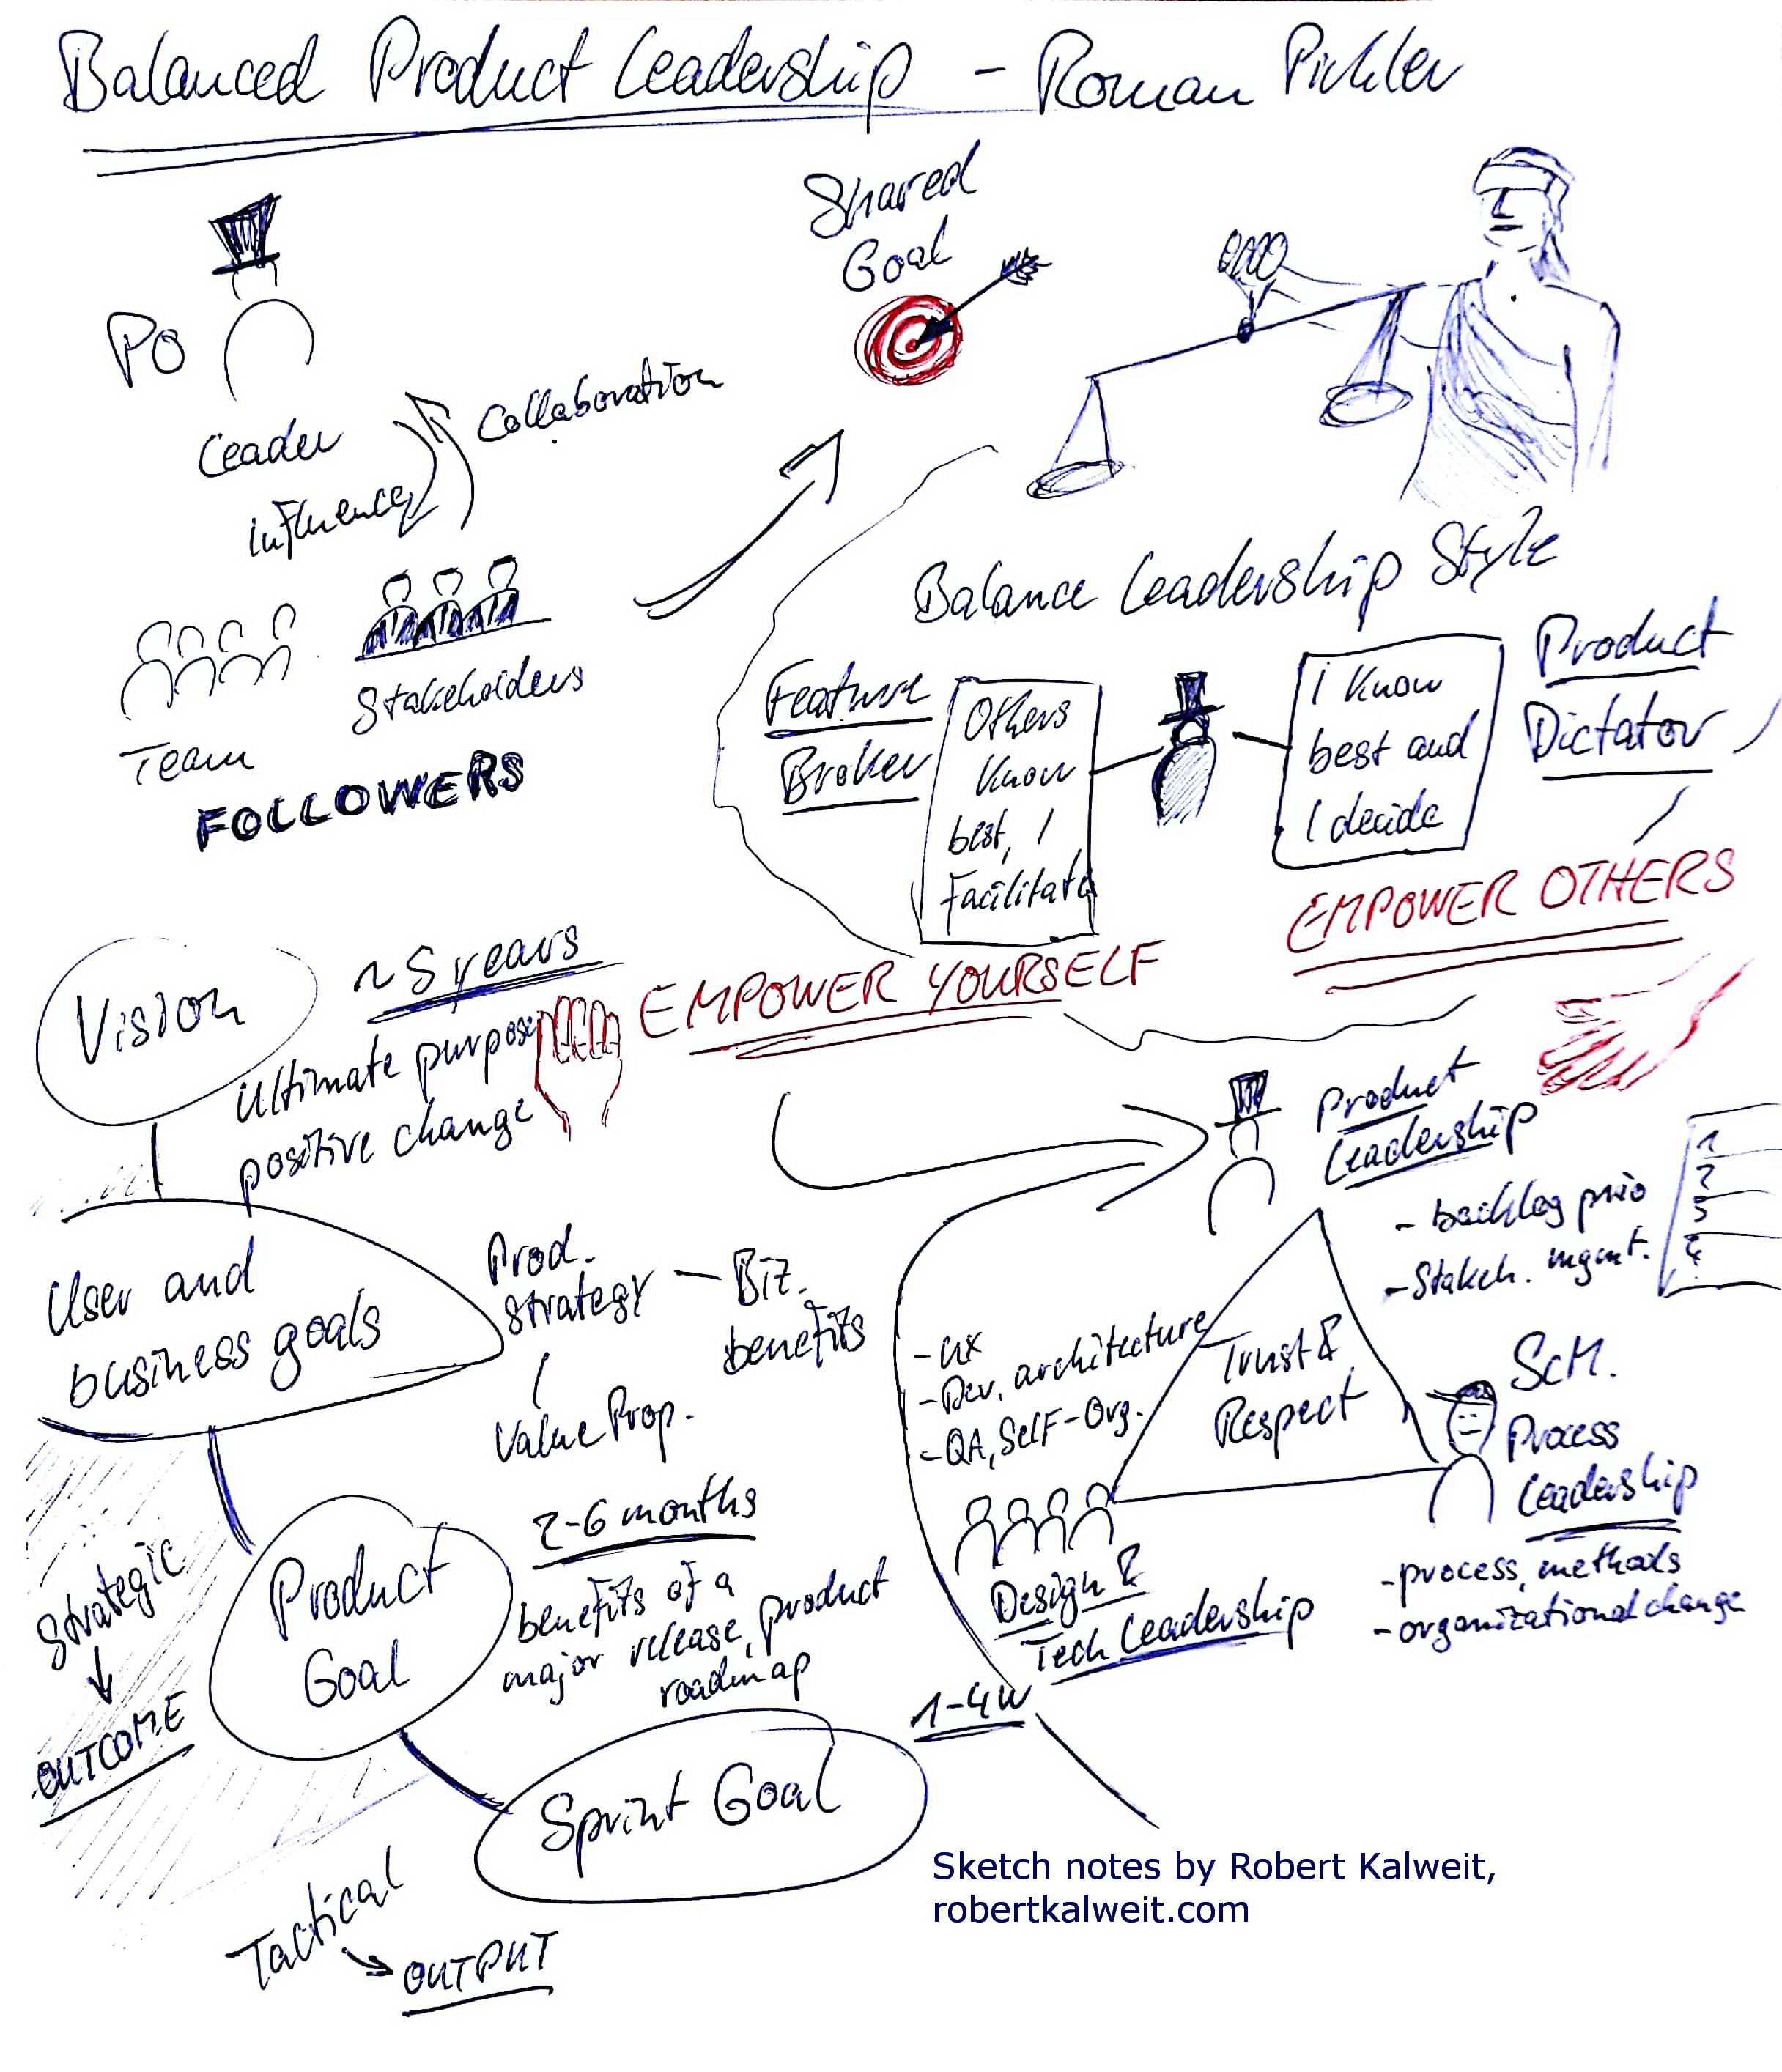 Balanced Product Leadership - Roman Pichler
PO
Leader
Influence
Collaboration
Team
Stakeholders
FOLLOWERS
Shared
Goal
Balance Leadership Style
Feature
Broker
Others
know
best, I
Facilitate
I know
best and
I decide
Product
Dictator
EMPOWER YOURSELF
EMPOWER OTHERS
Vision
~5 years
Ultimate purpose
positive change
User and
business goals
Prod.
Strategy - Biz.
benefits
Value Prop.
Product
Goal
2-6 months
benefits of a
major release, product
roadmap
Strategic
OUTCOME
Sprint Goal
1-4W
Tactical
OUTPUT
Product
Leadership
- backlog prio
- Stakeh. mgmt.
1
2
3
4
Trust &
Respect
- UX
- Dev. architecture
- QA, Self-Org.
Design &
Tech Leadership
ScM.
Process
Leadership
- process, methods
- organizational change
Sketch notes by Robert Kalweit,
robertkalweit.com